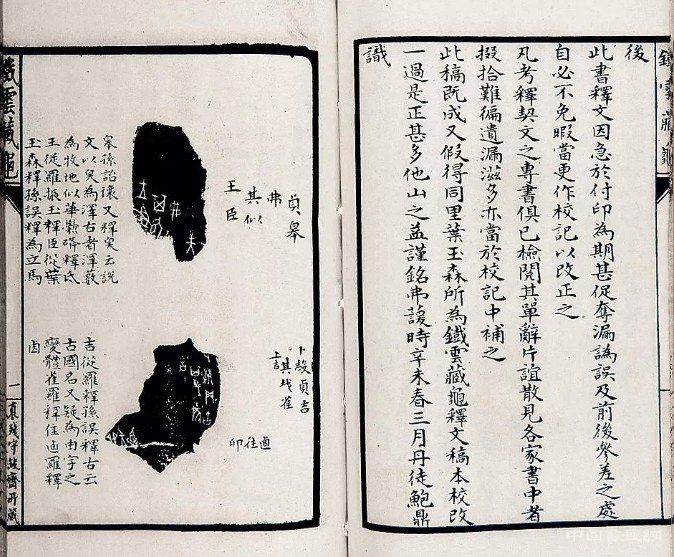 鐵雲藏龜
後
此書釋文因急於付印為期甚促奪漏譌誤及前後參差之處
自必不免暇當更作校記以改正之
凡考釋契文之專書俱已檢閱其單辭片誼散見各家書中者
掇拾難徧遺漏滋多亦當於校記中補之
此稿既成又假得同里葉玉森所為鐵雲藏龜釋文稿本校改
一過是正甚多他山之益謹銘弗諼時辛未春三月丹徒鮑鼎
識
貞皋
弗
其似
王臣
皋孫詒讓又釋臭云說
文以臭為澤古者澤藪
為牧地似華釋氏
王從羅振玉釋臣從葉
玉森釋孫誤釋為立馬
卜㱿貞吉
其雀
迺往
吉從羅釋孫誤釋古云
古國名又疑為由字之
變體雀羅釋往迺羅釋
卣
鐵雲藏龜
一
抱殘守缺齋所藏